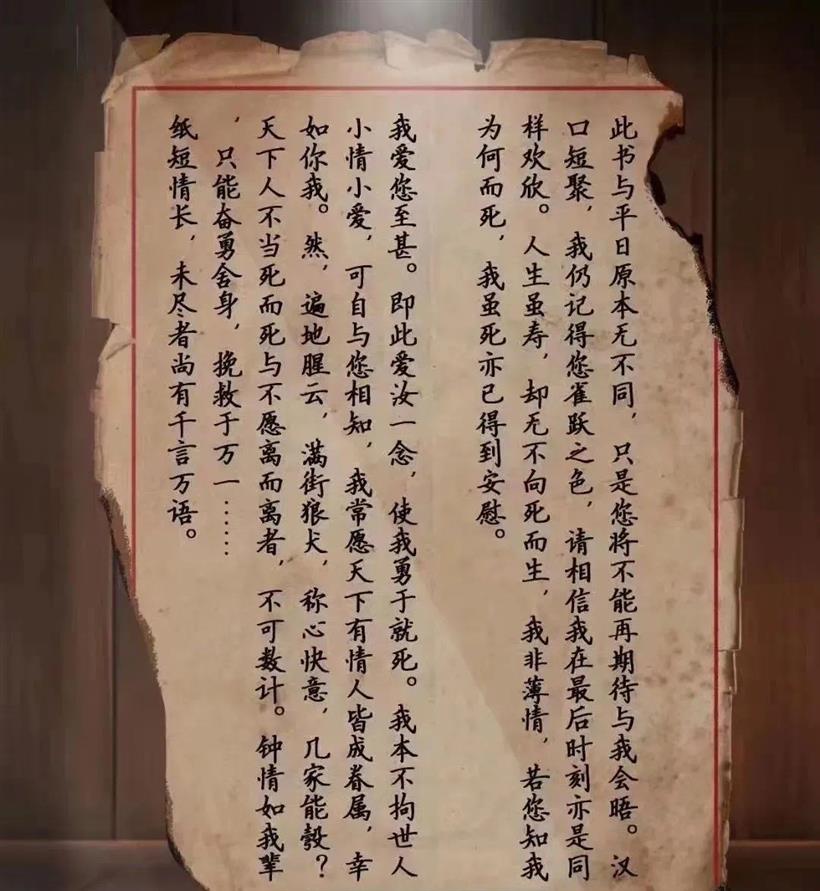 此书与平日原本无不同，只是您将不能再期待与我会晤。汉
口短聚，我仍记得您雀跃之色，请相信我在最后时刻亦是同
样欢欣。人生虽寿，却无不向死而生，我非薄情，若您知我
为何而死，我虽死亦已得到安慰。
我爱您至甚。即此爱汝一念，使我勇于就死。我本不拘世人
小情小爱，可自与您相知，我常愿天下有情人皆成眷属，幸
如你我。然，遍地腥云，满街狼犬，称心快意，几家能彀？
天下人不当死而死与不愿离而离者，不可数计。钟情如我辈
，只能奋勇舍身，挽救于万一……
纸短情长，未尽者尚有千言万语。